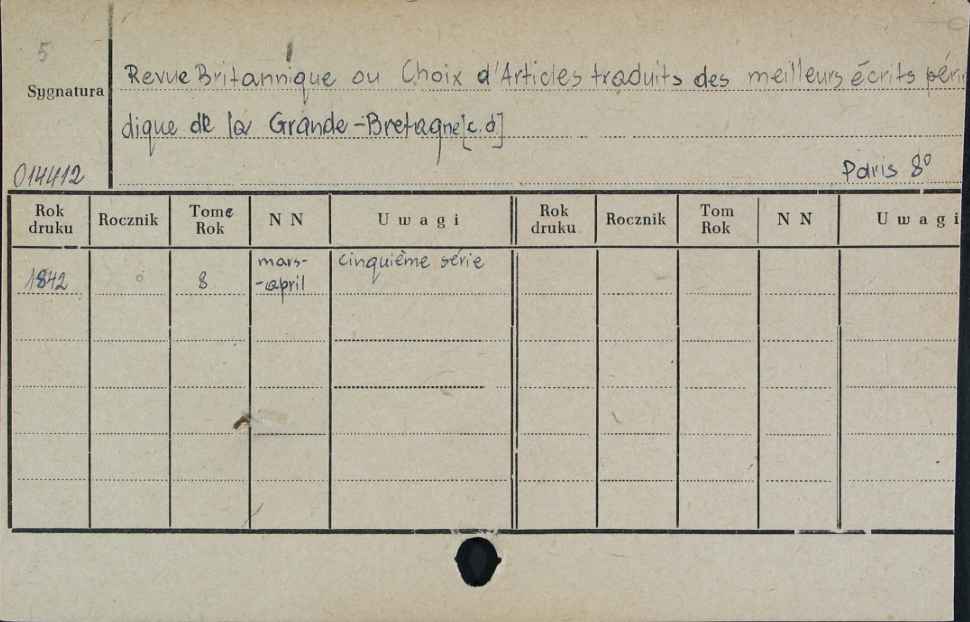 5
Sygnatura
Revue Britannique ou Choix d'Articles traduits des meilleurs écrits péri
dique de la Grande-Bretagne [c.d]
014412
Paris 8°
Rok druku Rocznik Tome Rok N N Uwagi Rok druku Rocznik Tom Rok N N Uwagi
1842 8 mars-
-april cinquième série